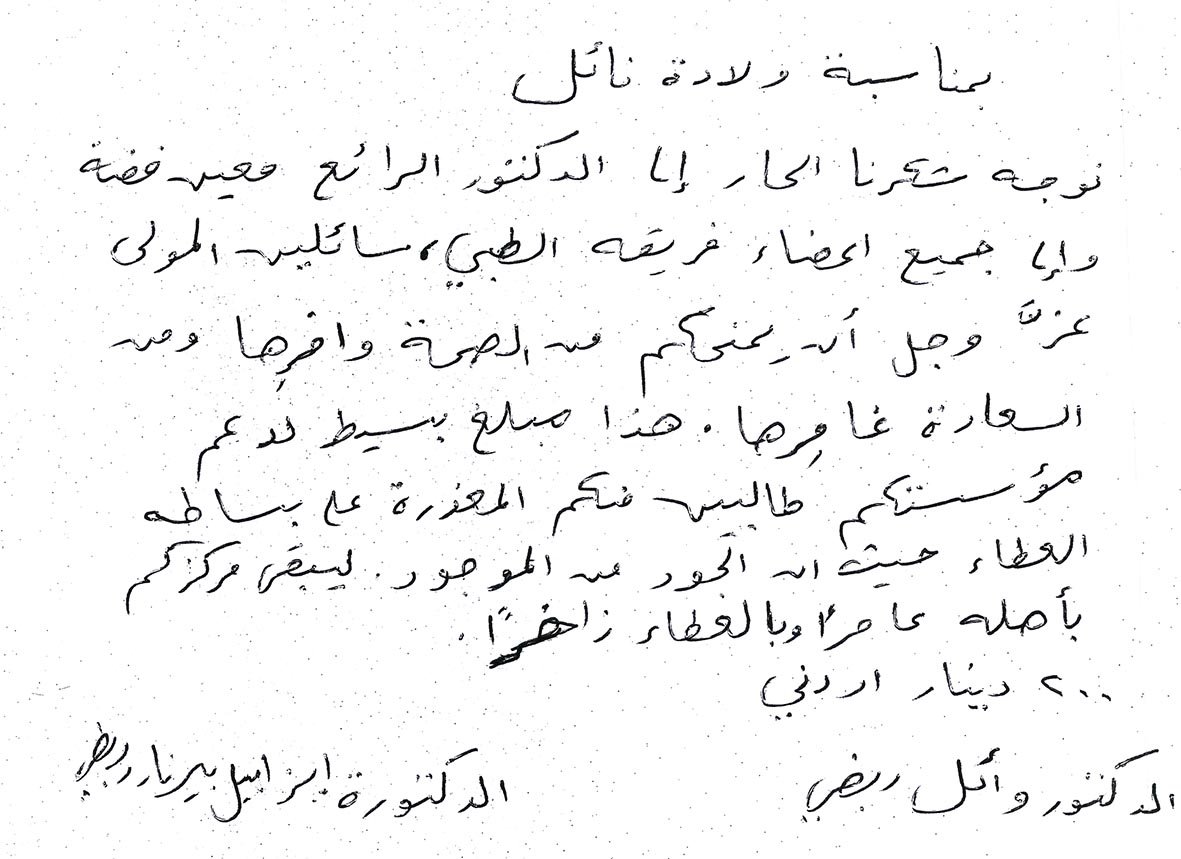 بمناسبة ولادة نائل
نوجه شكرنا الحار إلى الدكتور الرائع معين فضة
وإلى جميع اعضاء فريقه الطبي، سائلين المولى
عزَّ وجل أن يمنحكم من الصحة وافرِها ومن
السعادة غامِرها. هذا مبلغ بسيط لدعم
مؤسستكم طالبين منكم المعذرة على بساطه
العطاء حيث ان الجود من الموجود. ليبقى مركزكم
بأهله عامرًا وبالعطاء زاخرًا.
٢٠٠ دينار اردني
الدكتور وائل ربضي الدكتورة ايزابيل بيرنار ربضي